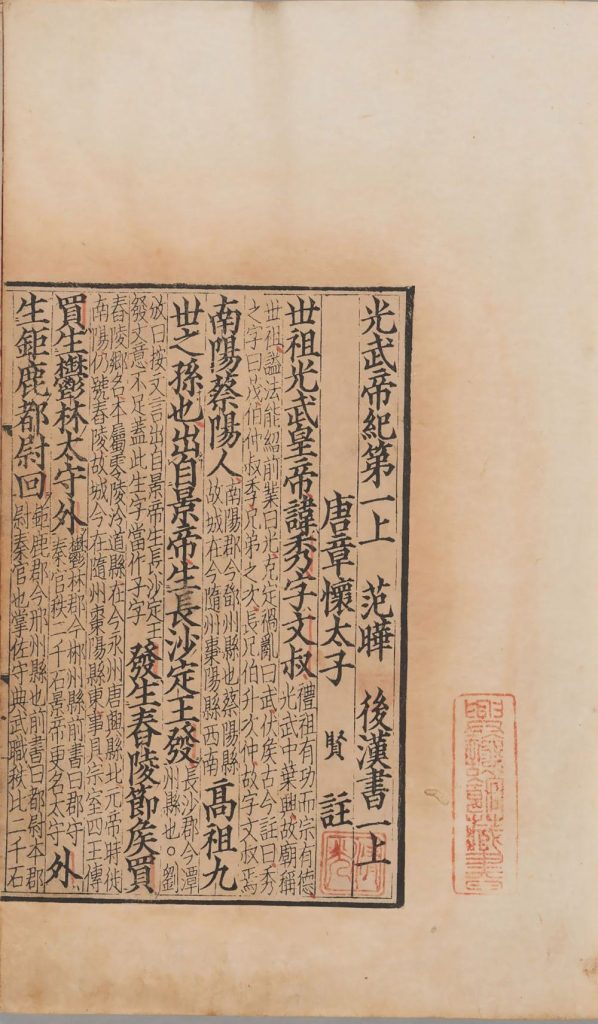 光武帝紀第一上　范曄　後漢書一上
唐章懷太子　賢　註
世祖光武皇帝諱秀字文叔
禮祖有功而宗有德
光武中葉興故廟稱
世祖謚法能紹前業曰光克定禍亂曰武伏侯古今註曰秀
之字曰茂伯仲叔季兄弟之次長兄伯升次仲故字文叔焉
南陽蔡陽人
南陽郡今鄧州縣也蔡陽縣
故城在今隋州棗陽縣西南
高祖九
世之孫也出自景帝生長沙定王發
長沙郡今潭
州縣也○劉
攽曰按文言出自景帝生長沙定王
發文意不足蓋此生字當作子字
發生舂陵節侯買
舂陵鄉名本屬零陵冷道縣在今永州唐興縣北元帝時徙
南陽仍號舂陵故城今在隋州棗陽縣東事具宗室四王傳
買生鬱林太守外
鬱林郡今郴州縣前書曰郡守
秦官秩二千石景帝更名太守
外
生鉅鹿都尉回
鉅鹿郡今邢州縣也前書曰都尉本郡
尉秦官也掌佐守典武職秩比二千石